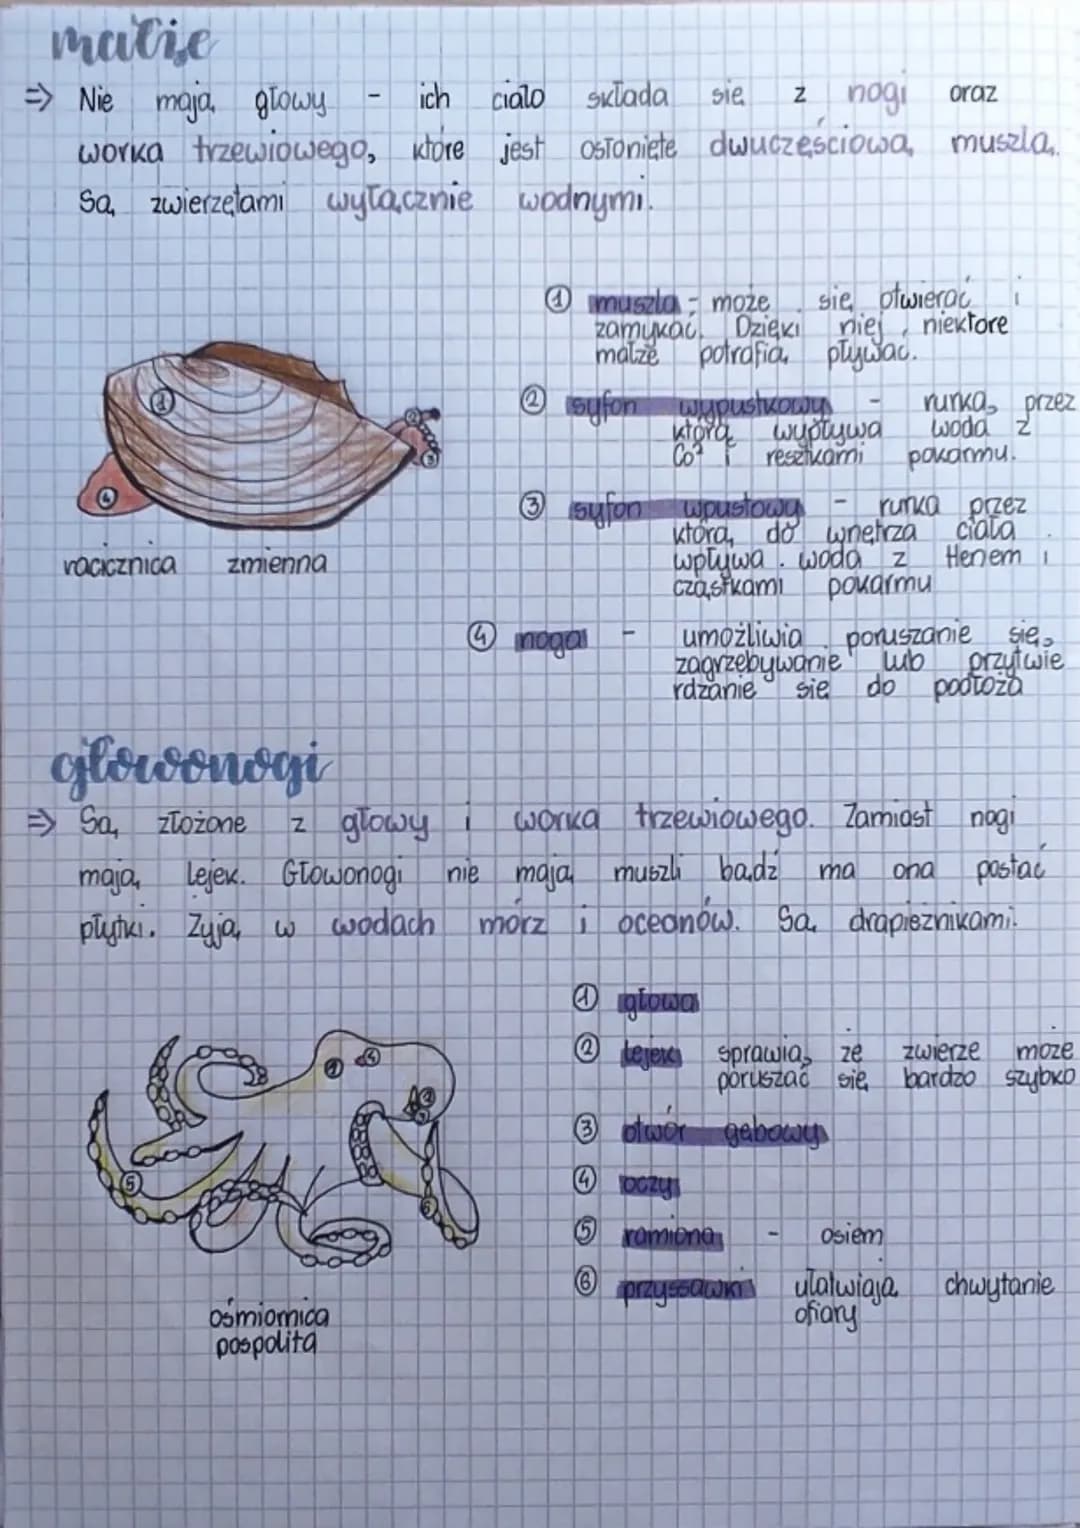 małże
⇒ Nie mają głowy - ich ciało składa się z nogi oraz
worka trzewiowego, które jest osłonięte dwuczęściową muszlą.
Są zwierzętami wyłącznie wodnymi.
① muszla - może się otwierać i
zamykać. Dzięki niej niektóre
małże potrafią pływać.
② syfon wypustkowy - rurka, przez
którą wypływa woda z
Co² i resztkami pokarmu.
③ syfon wpustowy - rurka przez
którą do wnętrza ciała
wpływa woda z tlenem i
cząstkami pokarmu
④ noga - umożliwia poruszanie się,
zagrzebywanie lub przytwie
rdzanie się do podłoża
① ② ③ ④
racicznica zmienna
głowonogi
⇒ Są złożone z głowy i worka trzewiowego. Zamiast nogi
mają lejek. Głowonogi nie mają muszli bądź ma ona postać
płytki. Żyją w wodach mórz i oceanów. Są drapieżnikami.
① głowa
② lejek sprawia, że zwierze może
poruszać się bardzo szybko
③ otwór gębowy
④ oczy
⑤ ramiona - osiem
⑥ przyssawki ułatwiają chwytanie
ofiary
① ④ ② ③ ⑤ ⑥
ośmiornica
pospolita